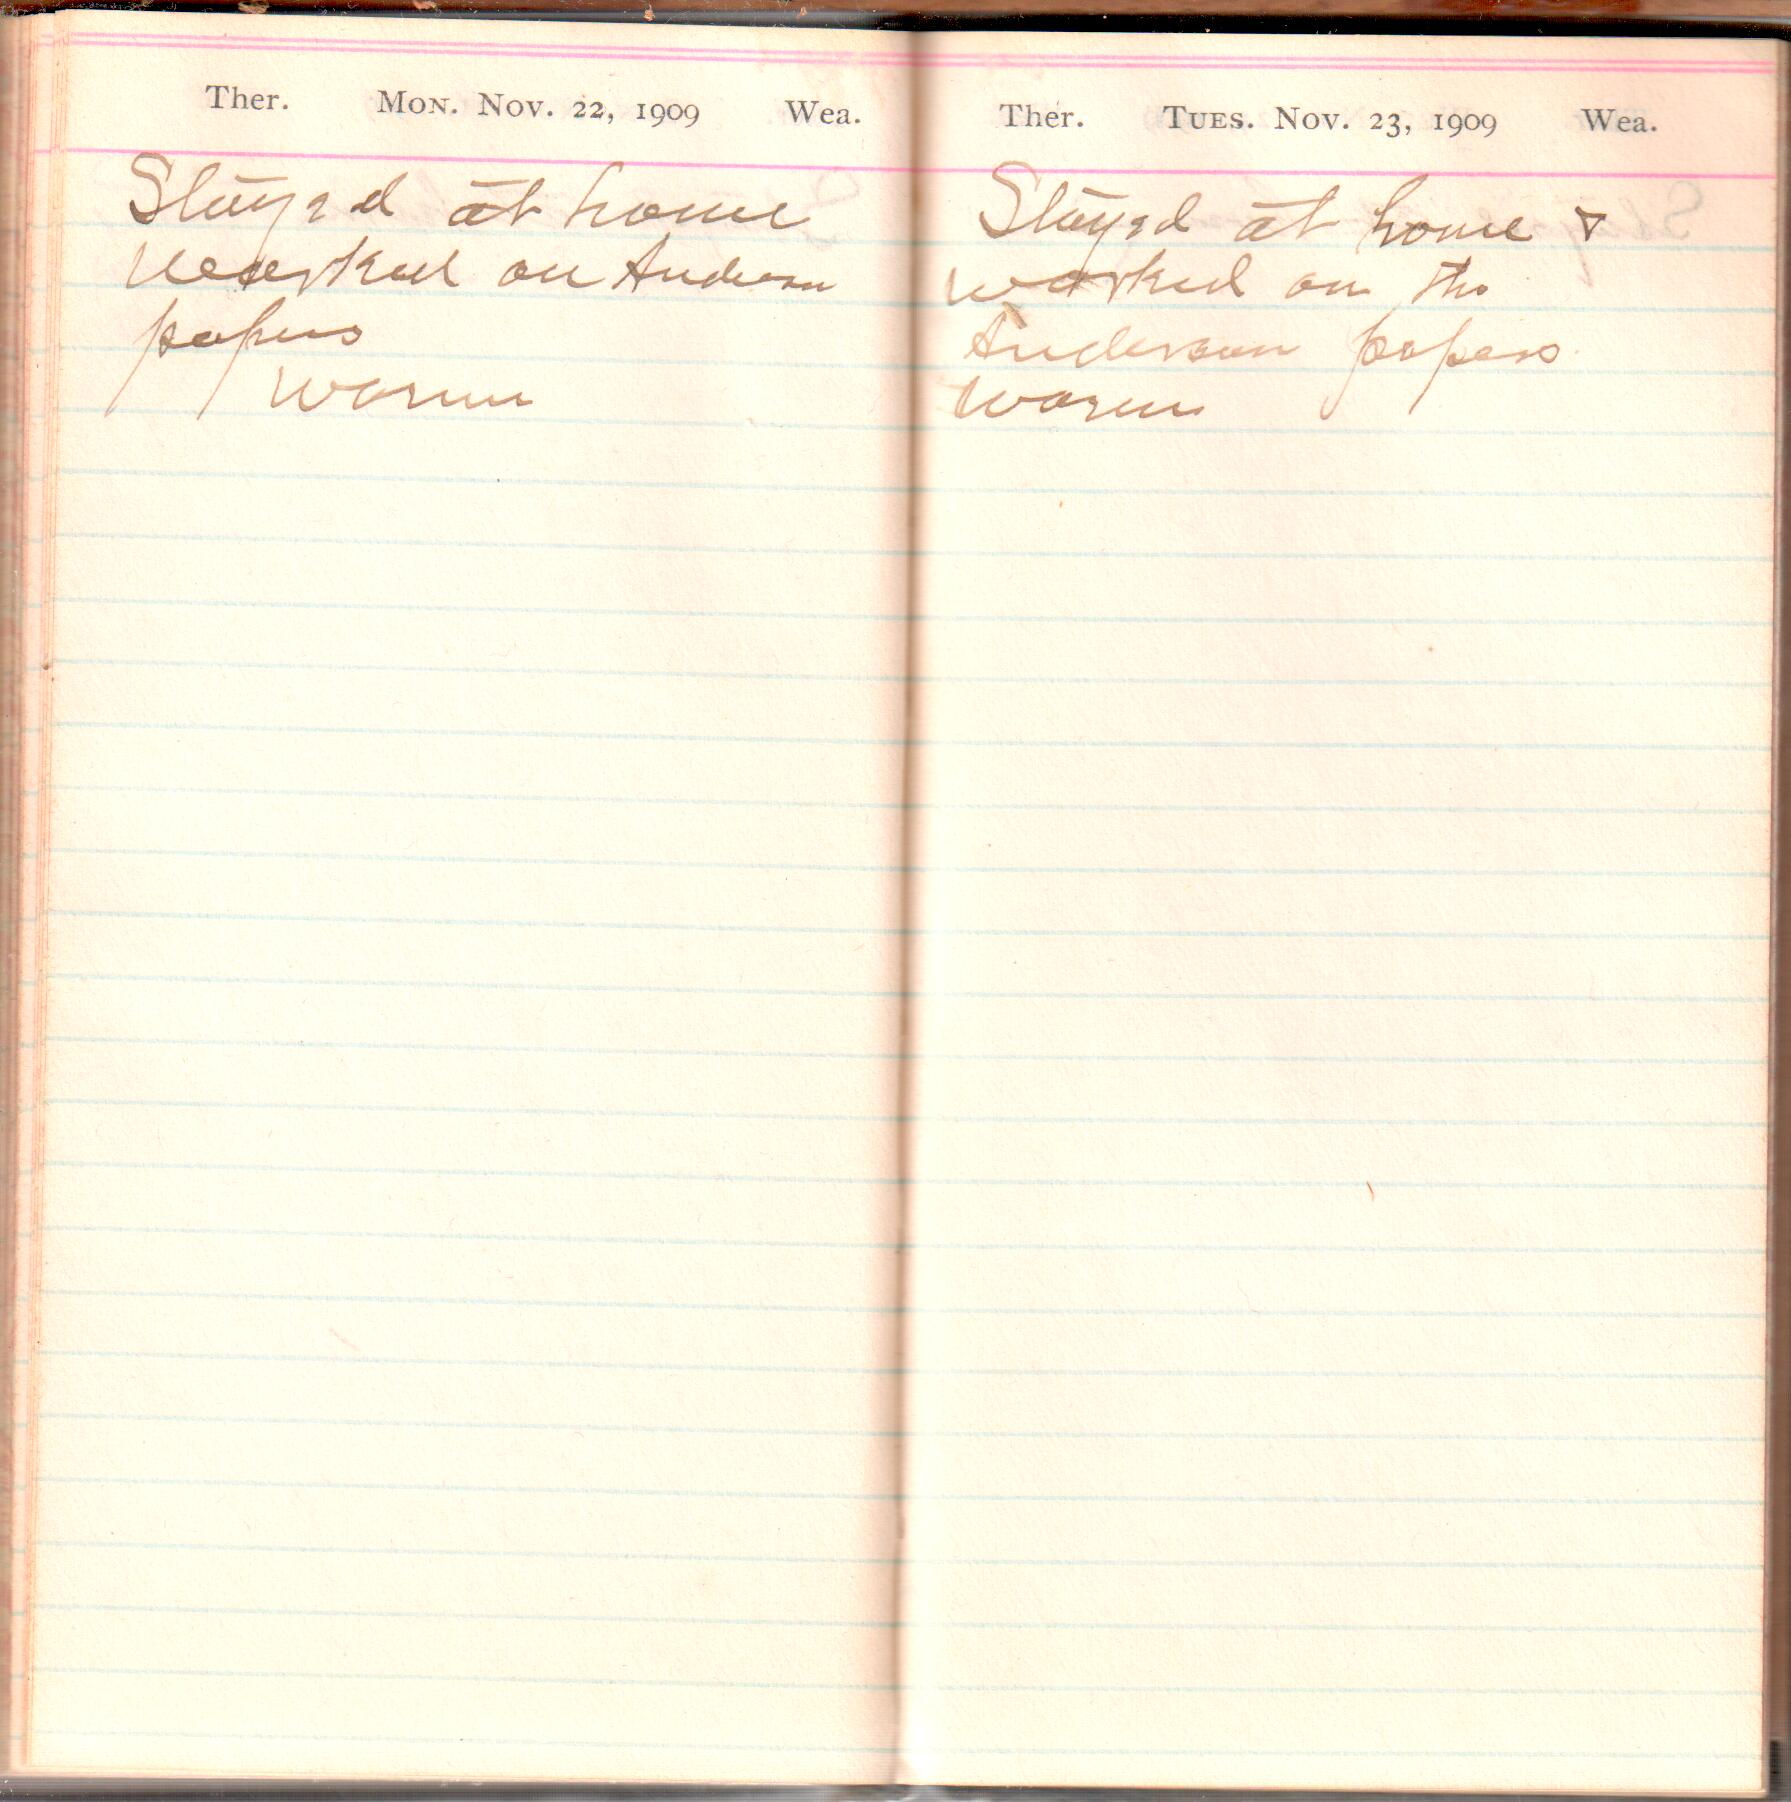 Ther. Mon. Nov. 22, 1909 Wea.
Stayed at home
Worked on Anderson
papers
Warm
Ther. Tues. Nov. 23, 1909 Wea.
Stayed at home &
worked on the
Anderson papers
Warm